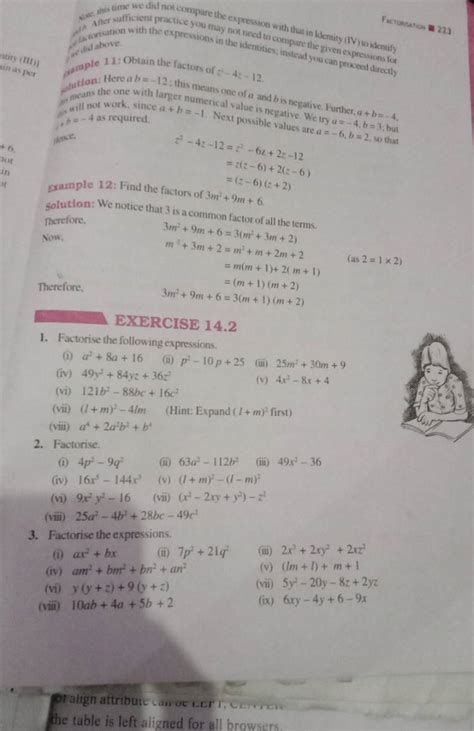 FACTORISATION 223
Note, this time we did not compare the expression with that in Identity (IV) to identify
a and b. After sufficient practice you may not need to compare the given expressions for
factorisation with the expressions in the identities; instead you can proceed directly
we did above.
Example 11: Obtain the factors of z² – 4z – 12.
Solution: Here a b = –12 ; this means one of a and b is negative. Further, a + b = – 4,
this means the one with larger numerical value is negative. We try a = – 4, b = 3; but
this will not work, since a + b = –1. Next possible values are a = – 6, b = 2, so that
a + b = – 4 as required.
Hence,
z² – 4z –12 = z² – 6z + 2z –12
= z(z – 6) + 2(z – 6 )
= (z – 6) (z + 2)
Example 12: Find the factors of 3m² + 9m + 6.
Solution: We notice that 3 is a common factor of all the terms.
Therefore,
3m² + 9m + 6 = 3(m² + 3m + 2)
Now,
m² + 3m + 2 = m² + m + 2m + 2 (as 2 = 1 × 2)
= m(m + 1)+ 2( m + 1)
= (m + 1) (m + 2)
Therefore,
3m² + 9m + 6 = 3(m + 1) (m + 2)
EXERCISE 14.2
1. Factorise the following expressions.
(i) a² + 8a + 16 (ii) p² – 10 p + 25 (iii) 25m² + 30m + 9
(iv) 49y² + 84yz + 36z² (v) 4x² – 8x + 4
(vi) 121b² – 88bc + 16c²
(vii) (l + m)² – 4lm (Hint: Expand ( l + m)² first)
(viii) a⁴ + 2a²b² + b⁴
2. Factorise.
(i) 4p² – 9q² (ii) 63a² – 112b² (iii) 49x² – 36
(iv) 16x⁵ – 144x³ (v) (l + m)² – (l – m)²
(vi) 9x² y² – 16 (vii) (x² – 2xy + y²) – z²
(viii) 25a² – 4b² + 28bc – 49c²
3. Factorise the expressions.
(i) ax² + bx (ii) 7p² + 21q² (iii) 2x³ + 2xy² + 2xz²
(iv) am² + bm² + bn² + an² (v) (lm + l) + m + 1
(vi) y (y + z) + 9 (y + z) (vii) 5y² – 20y – 8z + 2yz
(viii) 10ab + 4a + 5b + 2 (ix) 6xy – 4y + 6 – 9x
align attribute can be LEFT,
the table is left aligned for all browsers.